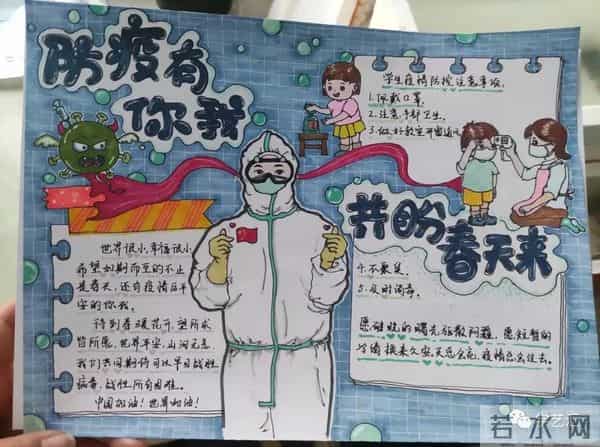 防疫有
你我
学生疫情防控注意事项
1.佩戴口罩
2.注意手部卫生
3.做好教室开窗通风
共盼
春天来
4.不聚集
5.及时消毒
世界很小,幸福很小
希望如期而至的不止
是春天,还有疫情后平
安的你我。
待到春暖花开,望所求
皆所愿,世界平安,山河无恙
我们共同期待可以早日战胜
病毒,战胜所有困难。
中国加油!世界加油!
愿胜利的曙光驱散阴霾,愿短暂的
冷清换来久安,天总会亮,疫情总会过去。
若水网